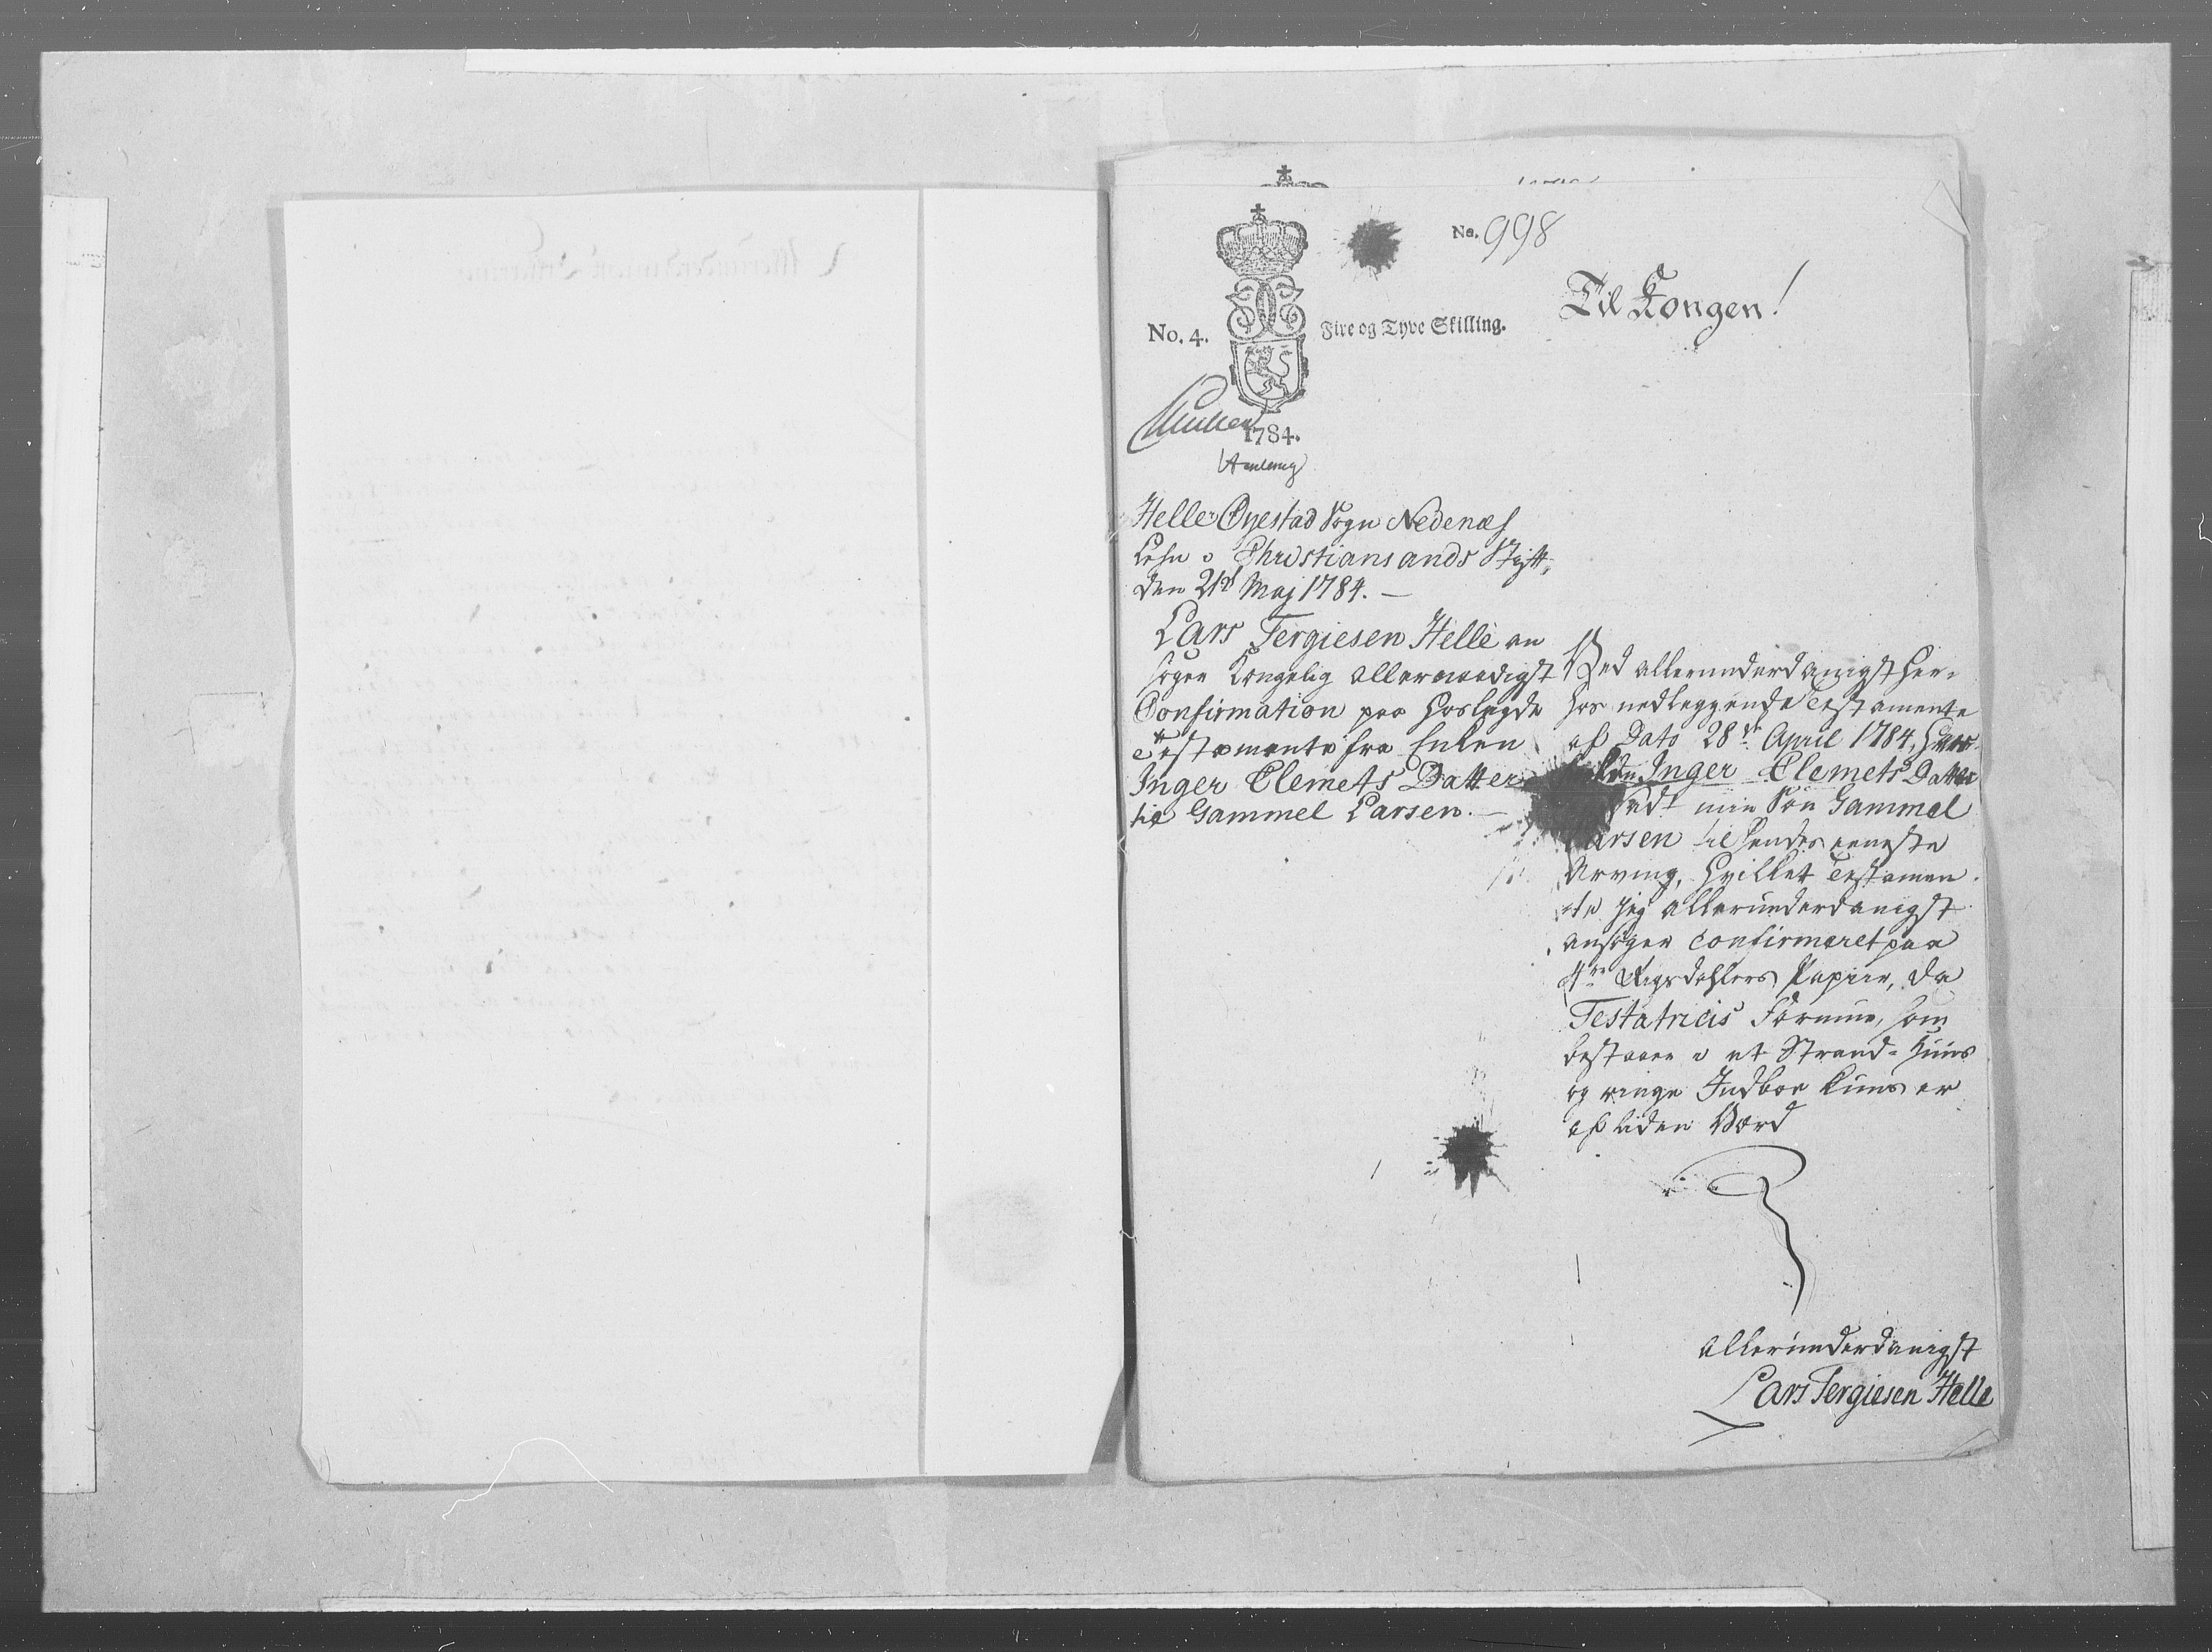 No. 998
Til Kongen!
No. 4.
Fire og Tyve Skilling.
1784.
Helle Øyestad Sogn Nedenæs
Lehn i Christiansands Stift,
den 21d Maj 1784. —
Lars Tergiesen Helle an
søger Kongelig allernaadigst
Confirmation paa hoslagde
Testamente fra Enken
Inger Clemets Datter
til Gammel Larsen. —
Ved allerunderdanigst her-
hos nedleggende Testamente
af Dato 28de April 1784, haver
Inger Clemets Datter
min Søn Gammel
Larsen til hendes eeneste
Arving, hvilket Testamen
-te jeg allerunderdanigst
ansøger confirmeret paa
4re Rigsdahlers Papiir, da
Testatricis Formue, som
bestaaer i et Strand-Huus
og ringe Indboe kuns er
af liden Værd
allerunderdanigst
Lars Tergiesen Helle